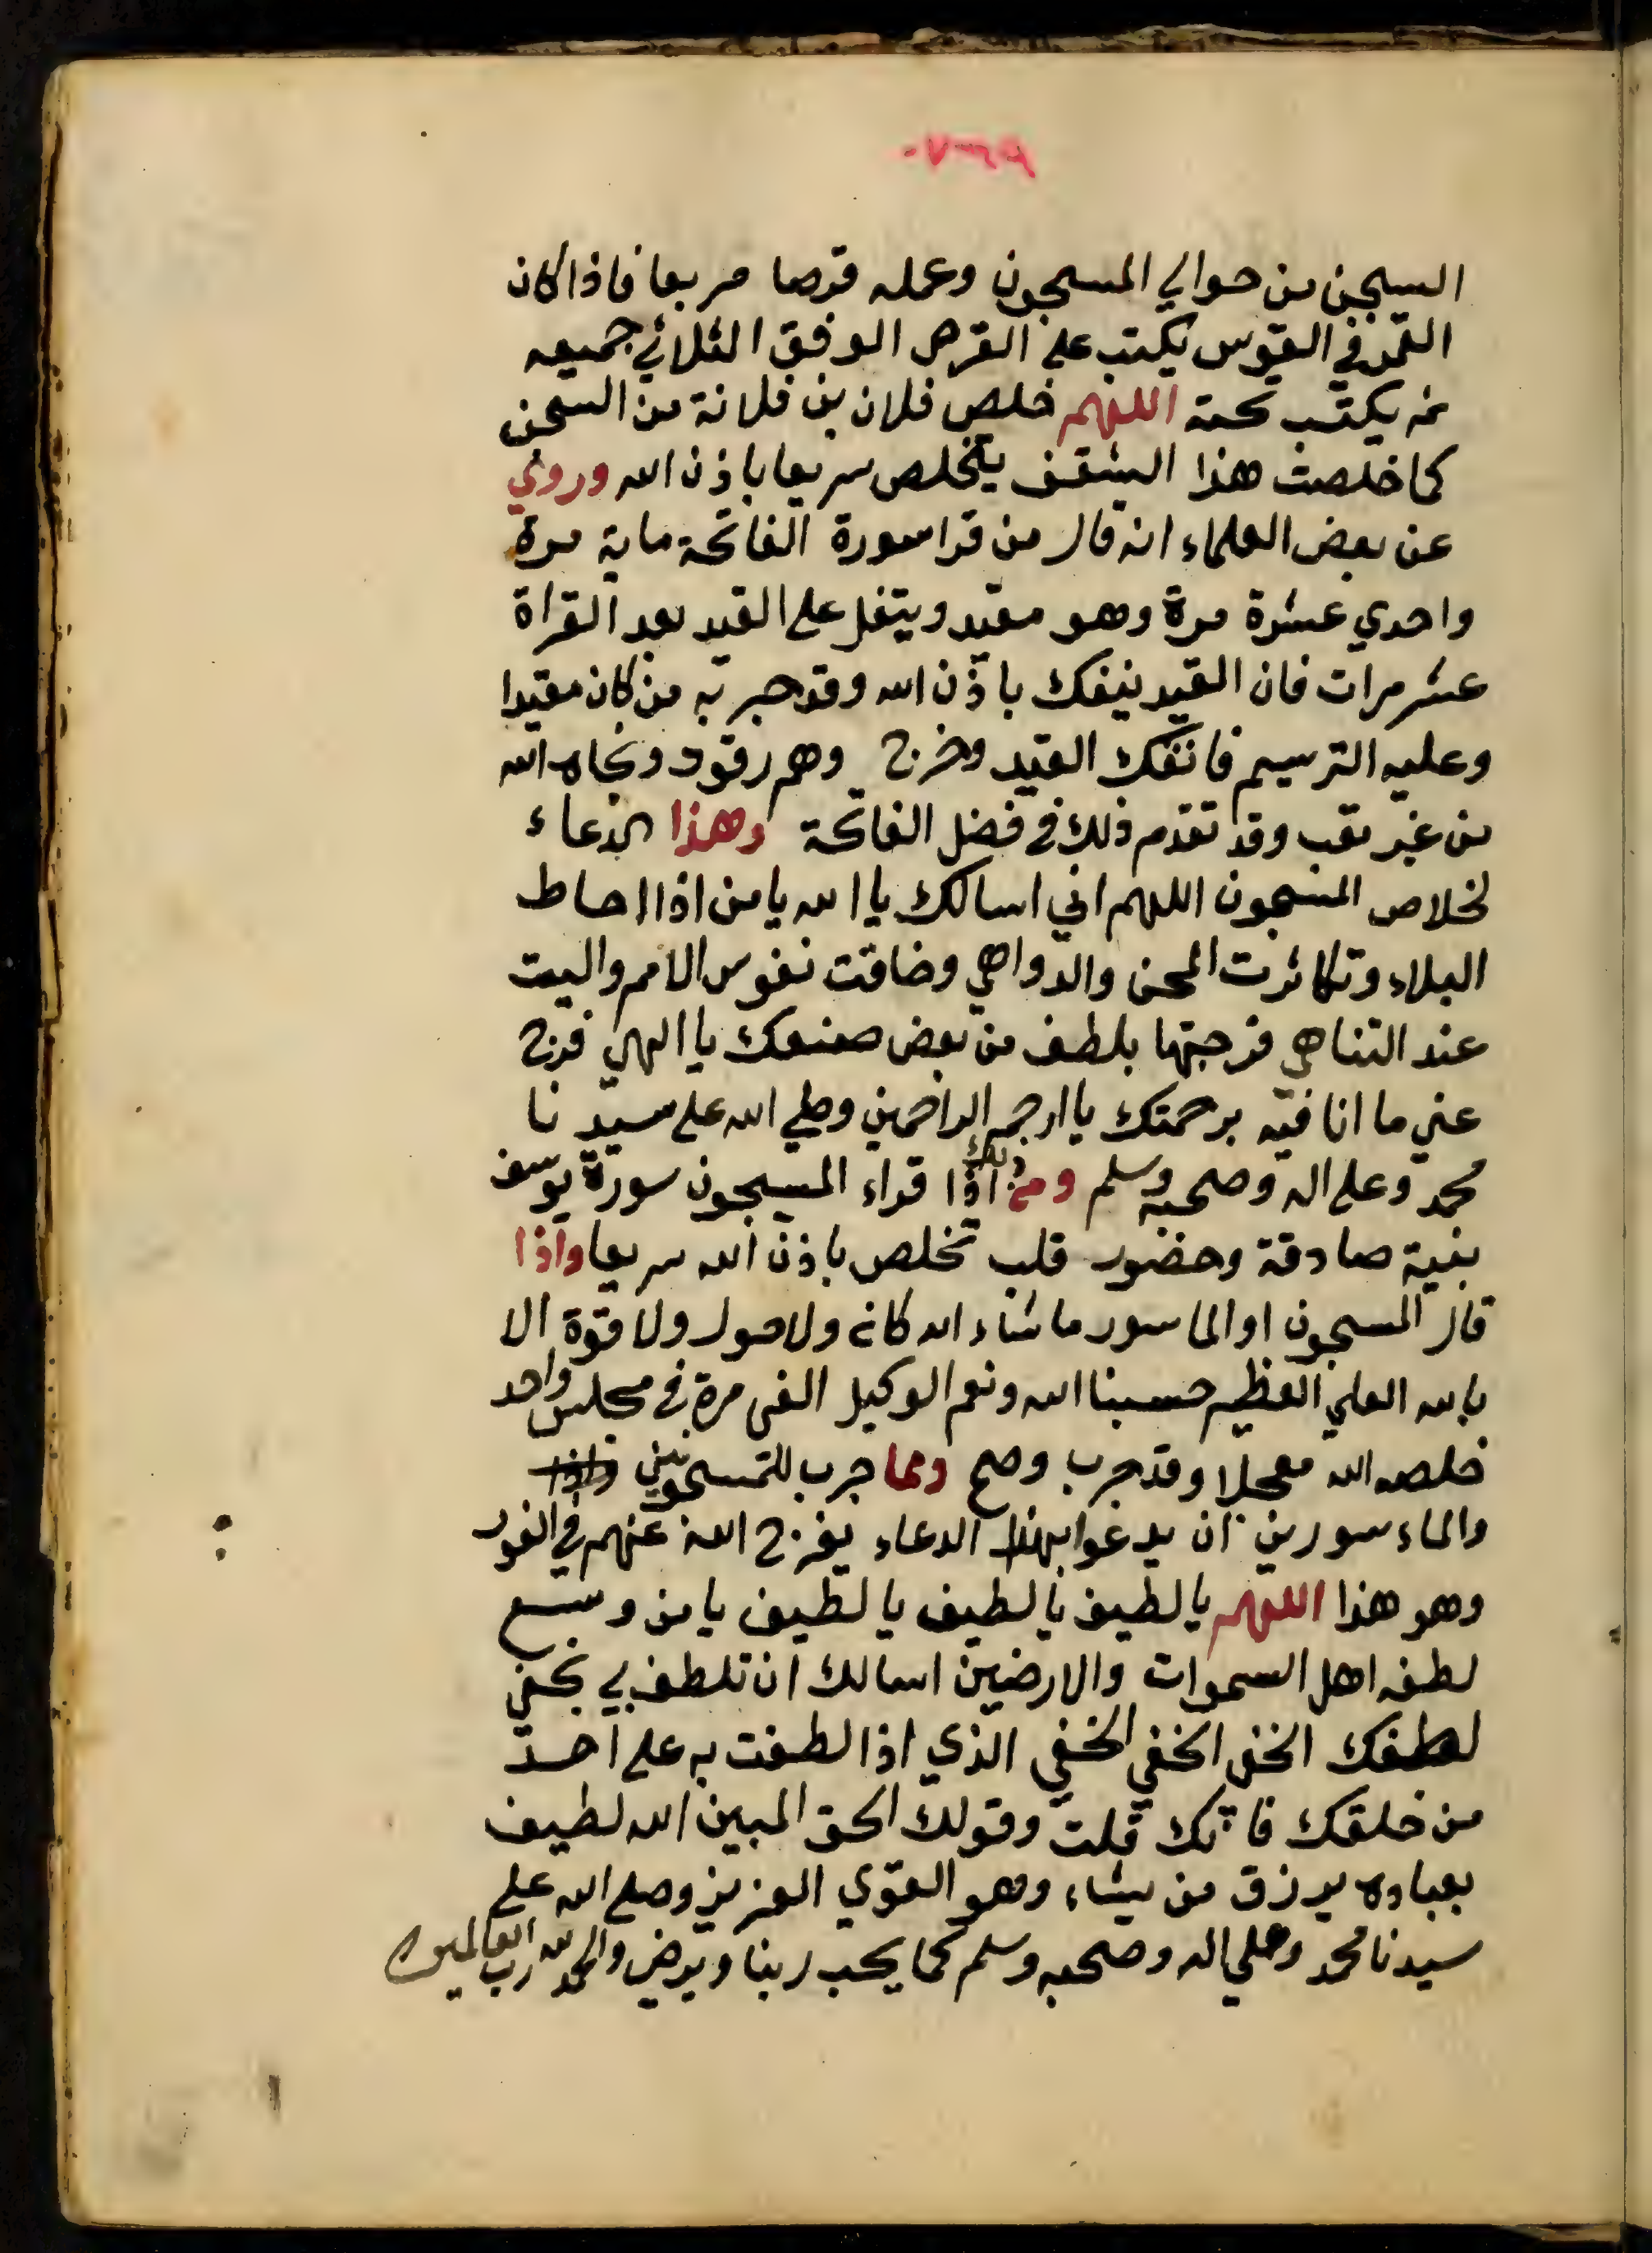 السجن من حوالي المسجون وعمله قرصا مربعا فاذا كان
القمر في القوس يكتب على القرص الوفق الثلاثي جميعه
ثم يكتب تحته اللهم خلص فلان بن فلانة من السجن
كما خلصت هذا الشقف يتخلص سريعا باذن الله وروي
عن بعض العلماء انه قال من قرا سورة الفاتحة ماية مرة
واحدي عشرة مرة وهو مقيد ويتفل على القيد بعد القراة
عشر مرات فان القيد ينفك باذن الله وقد جربه من كان مقيدا
وعليه الترسيم فانفك القيد وخرج وهم رقود ونجاه الله
من غير تعب وقد تقدم ذلك في فضل الفاتحة وهذا الدعاء
لخلاص المسجون اللهم اني اسالك يا الله يا من اذا احاط
البلاء وتكاثرت المحن والدواهي وضاقت نفوس الامم واليت
عند التناهي فرجتها بلطف من بعض صنعك يا الهي فرج
عني ما انا فيه برحمتك يا ارحم الراحمين وصلي الله على سيدنا
محمد وعلى اله وصحبه وسلم ومن ذلك اذا قراء المسجون سورة يوسف
بنية صادقة وحضور قلب تخلص باذن الله سريعا واذا
قال المسجون او الماسور ما شاء الله كان ولا حول ولا قوة الا
بالله العلي العظيم حسبنا الله ونعم الوكيل الفى مرة في مجلس واحد
خلصه الله معجلا وقد جرب وصح ومما جرب للمسجونين واذا
والماء سورين ان يدعوا بهذا الدعاء يفرج الله عنهم في الفور
وهو هذا اللهم يا لطيف يا لطيف يا لطيف يا من وسع
لطفه اهل السموات والارضين اسالك ان تلطف بي بخفي
لطفك الخفي الخفي الخفي الذي اذا لطفت به على احد
من خلقك فانك قلت وقولك الحق المبين الله لطيف
بعباده يرزق من يشاء وهو القوي العزيز وصلى الله على
سيدنا محمد وعلي اله وصحبه وسلم كما يحب ربنا ويرضي والحمد لله رب العالمين